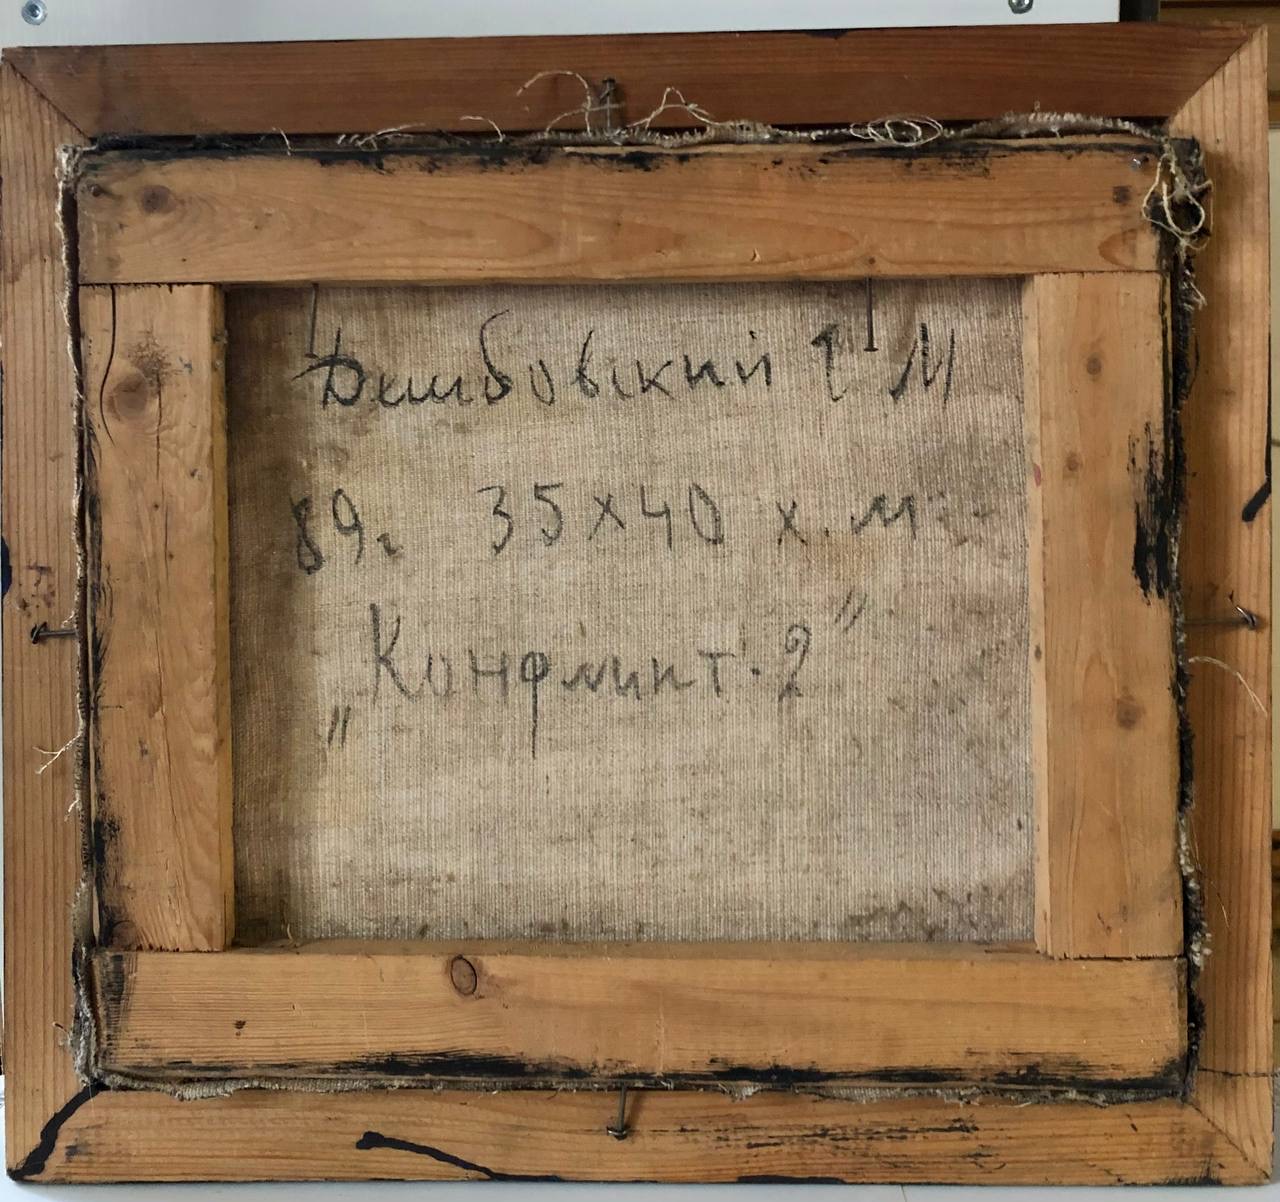 Дембовский Г М
89г 35х40 х.м
„Конфликт.2”